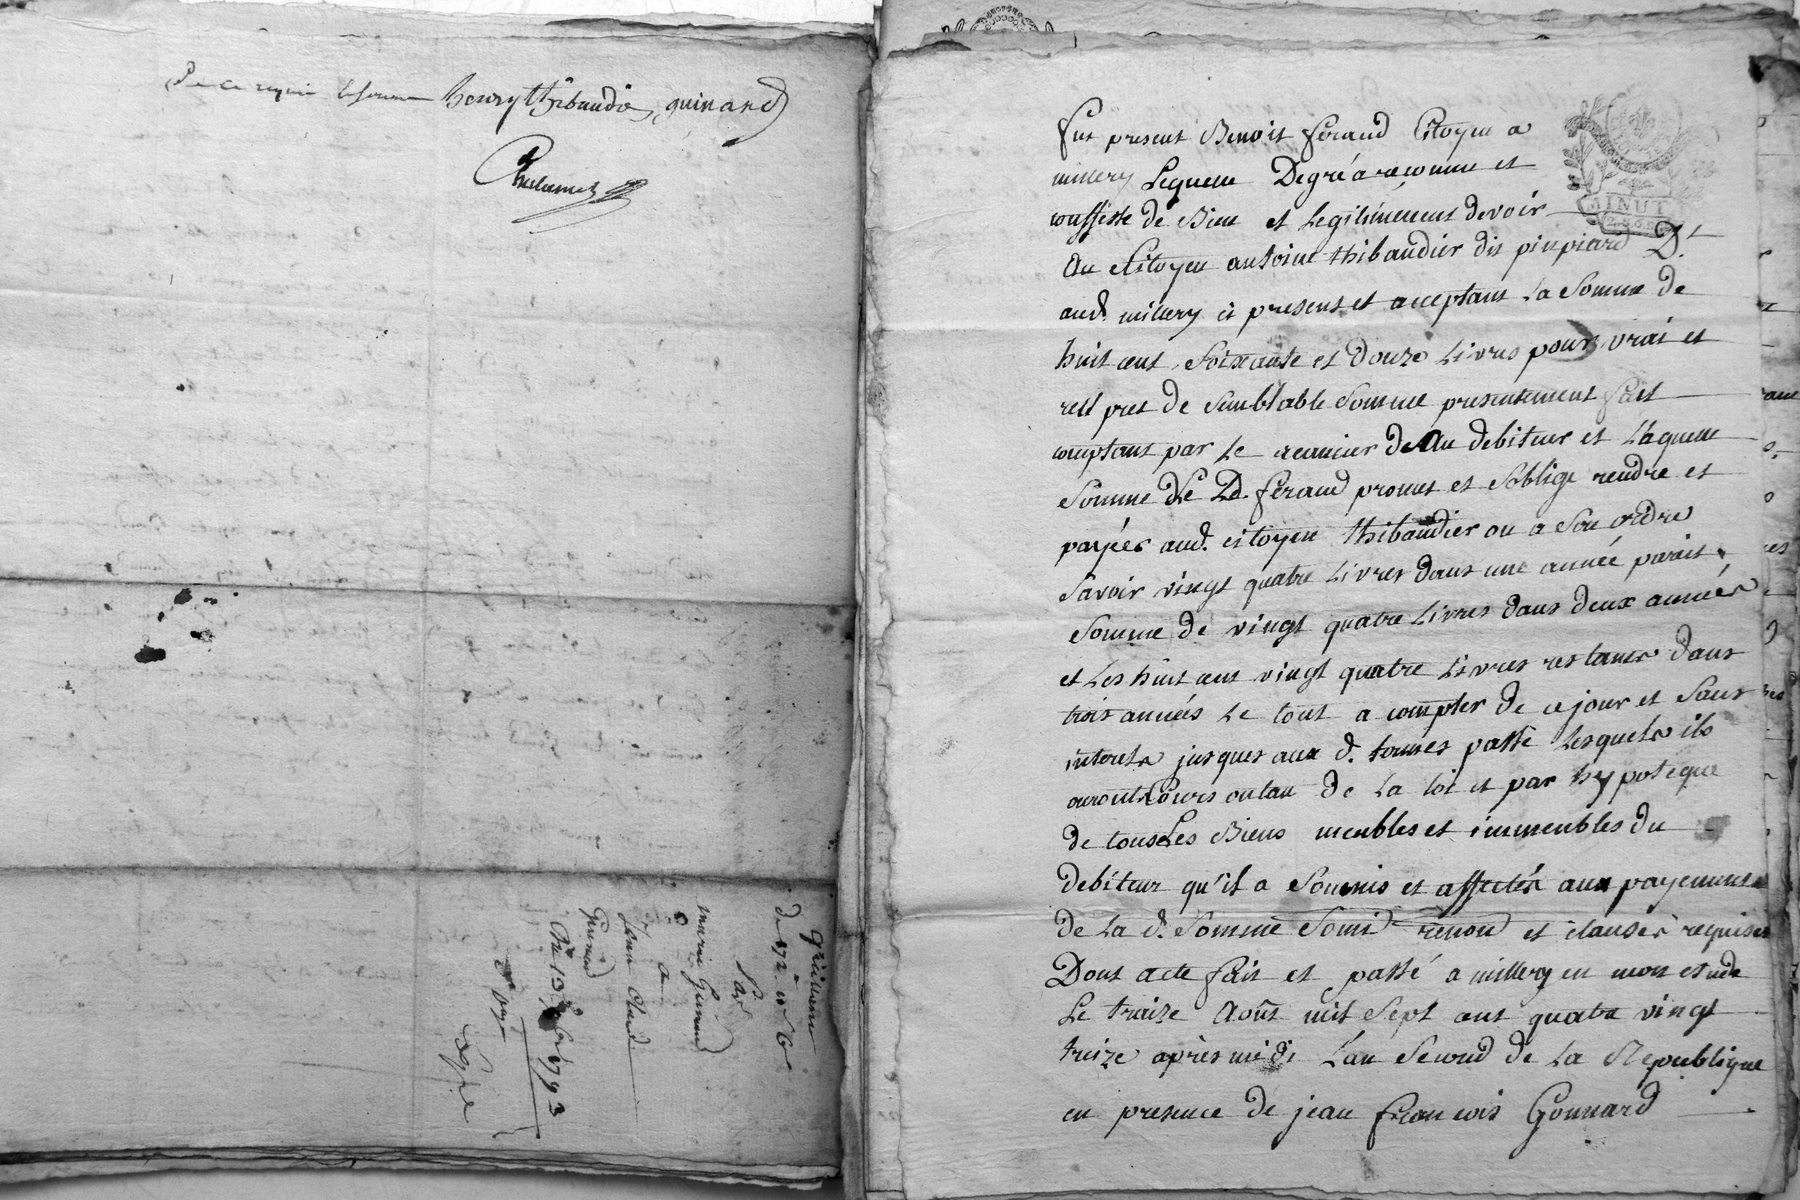 henry thibaudié, guinand
Quittance
de 172 ₶ 6
Par
marie Guinand
a
Jean Claude
Guinand
Du 13 1793
Fut present Benoit feraud Citoyen a
millery Lequelle Degré a reconnu et
conffessé de Bien et Legitimement devoir
Au Citoyen antoine thibaudier dit pinpiard Dt.
aud. millery ci present et acceptant La Somme de
huit cent Soixante et Douze Livres pour vrai et
rell pret de Semblable Somme presentement fait
comptant par Le creancier De Au debiteur et Laquelle
Somme Le Ld. feraud promet et S'oblige rendre et
payéer aud. citoyen thibaudier ou a Son ordre
Savoir vingt quatre Livres dans une année pareit
Somme de vingt quatre Livres dans deux années
et Les huit cent vingt quatre Livres restants dans
trois années Le tout a compter de ce jour et Sans
interets jusques aux d. termes passé Lesquels ils
auront Cours de La loi et par hypoteque
de tous Les Biens meubles et immeubles du
debiteur qu'il a Soumis et affectés aux payements
de La d. Somme Soumi renon et clauses requises
Dont acte fait et passé a millery en mon etude
Le traize Août mil Sept cent quatre vingt
treize après midi L'an Second de La Republique
en presence de jean francois Gonnard
MINUT